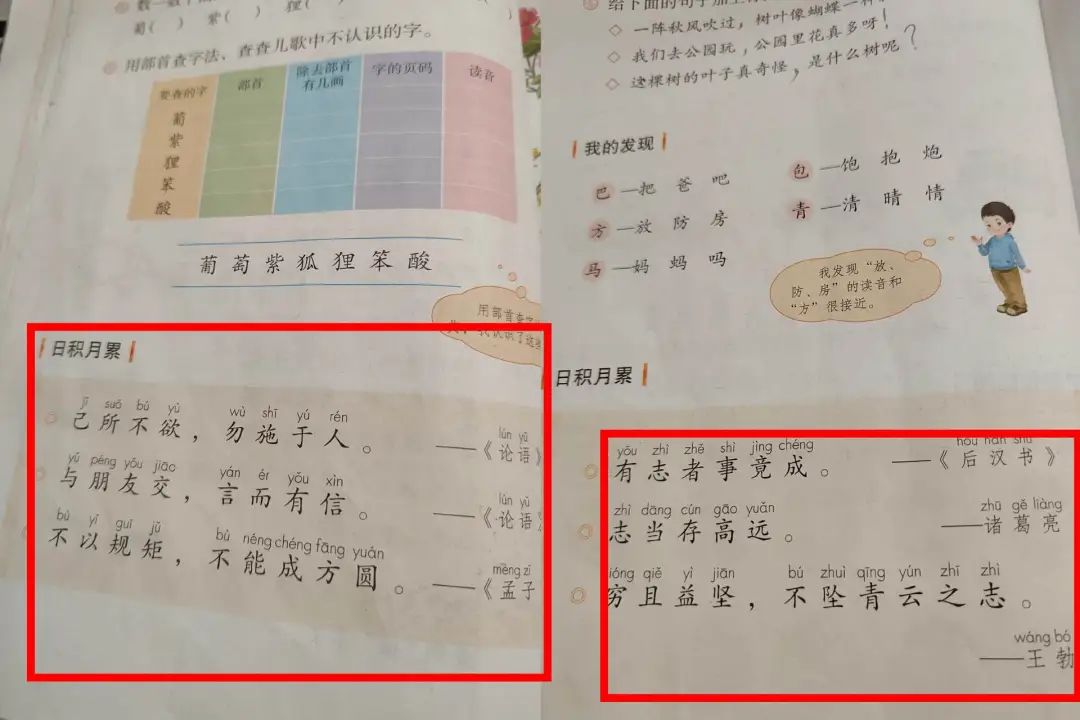 数一数
葡( ) 紫( ) 狸( )
用部首查字法，查查儿歌中不认识的字。
要查的字 部首 除去部首有几画 字的页码 读音
葡
紫
狸
笨
酸
葡 萄 紫 狐 狸 笨 酸
用部首查字
我认识了这些
日积月累
jǐ suǒ bú yù wù shī yú rén
己所不欲，勿施于人。
lún yǔ
——《论语》
yǔ péng yǒu jiāo yán ér yǒu xìn
与朋友交，言而有信。
lún yǔ
——《论语》
bù yǐ guī jǔ bù néng chéng fāng yuán
不以规矩，不能成方圆。
mèng zǐ
——《孟子
给下面的句子加上
◇ 一阵秋风吹过，树叶像蝴蝶一样
◇ 我们去公园玩，公园里花真多呀！
◇ 这棵树的叶子真奇怪，是什么树呢？
我的发现
巴—把 爸 吧
方—放 防 房
马—妈 蚂 吗
包—饱 抱 炮
青—清 晴 情
我发现“放、
防、房”的读音和
“方”很接近。
日积月累
yǒu zhì zhě shì jìng chéng
有志者事竟成。
hòu hàn shū
——《后汉书》
zhì dāng cún gāo yuǎn
志当存高远。
zhū gě liàng
——诸葛亮
ióng qiě yì jiān bú zhuì qīng yún zhī zhì
穷且益坚，不坠青云之志。
wáng bó
——王勃